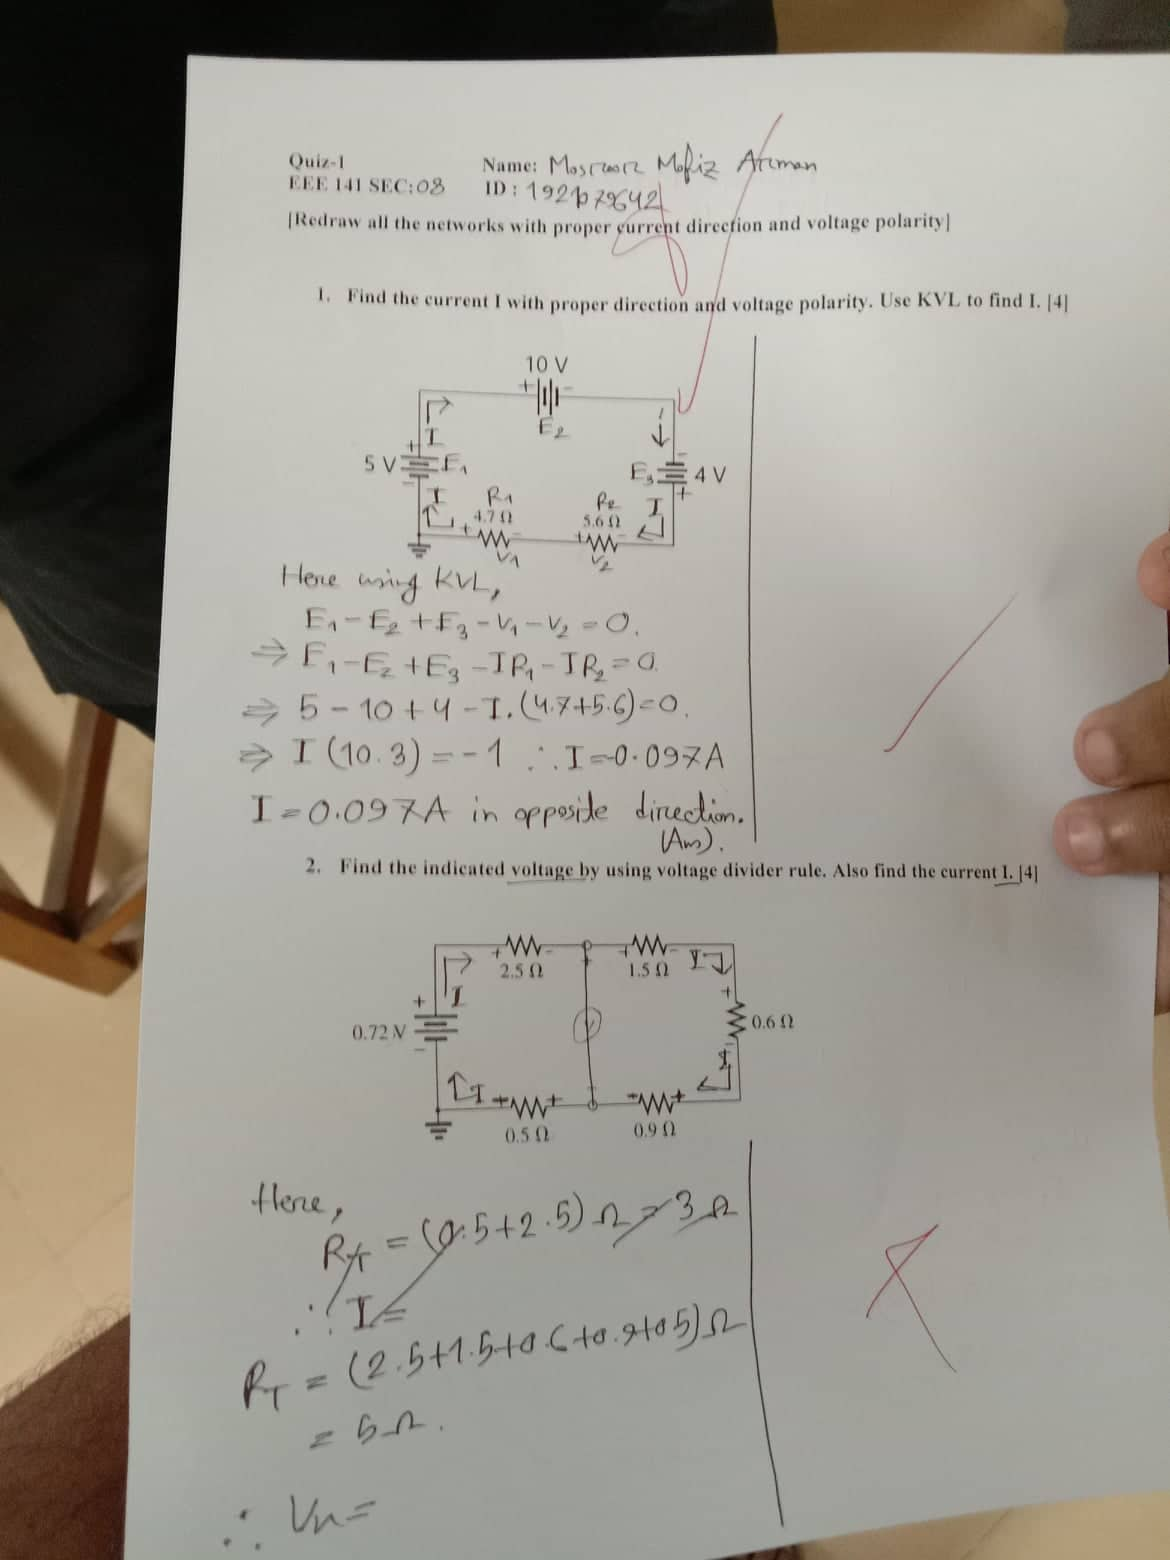 Quiz-1
Name: Mosroor Mofiz Arman
EEE 141 SEC:08
[Redraw all the networks with proper current direction and voltage polarity]
1. Find the current I with proper direction and voltage polarity. Use KVL to find I. [4]
10 V
+ -
E2
I
I
+ -
5 V E1 E3 4 V
- +
I R1 R2 I
4.7 Ω 5.6 Ω
+ - + -
V1 V2
Here using KVL,
E1 - E2 + E3 - V1 - V2 = 0.
⇒ E1 - E2 + E3 - IR1 - IR2 = 0.
⇒ 5 - 10 + 4 - I.(4.7+5.6)=0.
⇒ I (10.3) = -1 ∴ I=-0.097A
I = 0.097A in opposite direction.
(Ans).
2. Find the indicated voltage by using voltage divider rule. Also find the current I. [4]
+ - + -
2.5 Ω 1.5 Ω I
I
+ +
0.72 V V 0.6 Ω
- -
I I
0.5 Ω 0.9 Ω
Here,
RT = (0.5+2.5) Ω = 3 Ω
∴ I =
RT = (2.5+1.5+0.6+0.9+0.5) Ω
= 5 Ω.
∴ Vn =